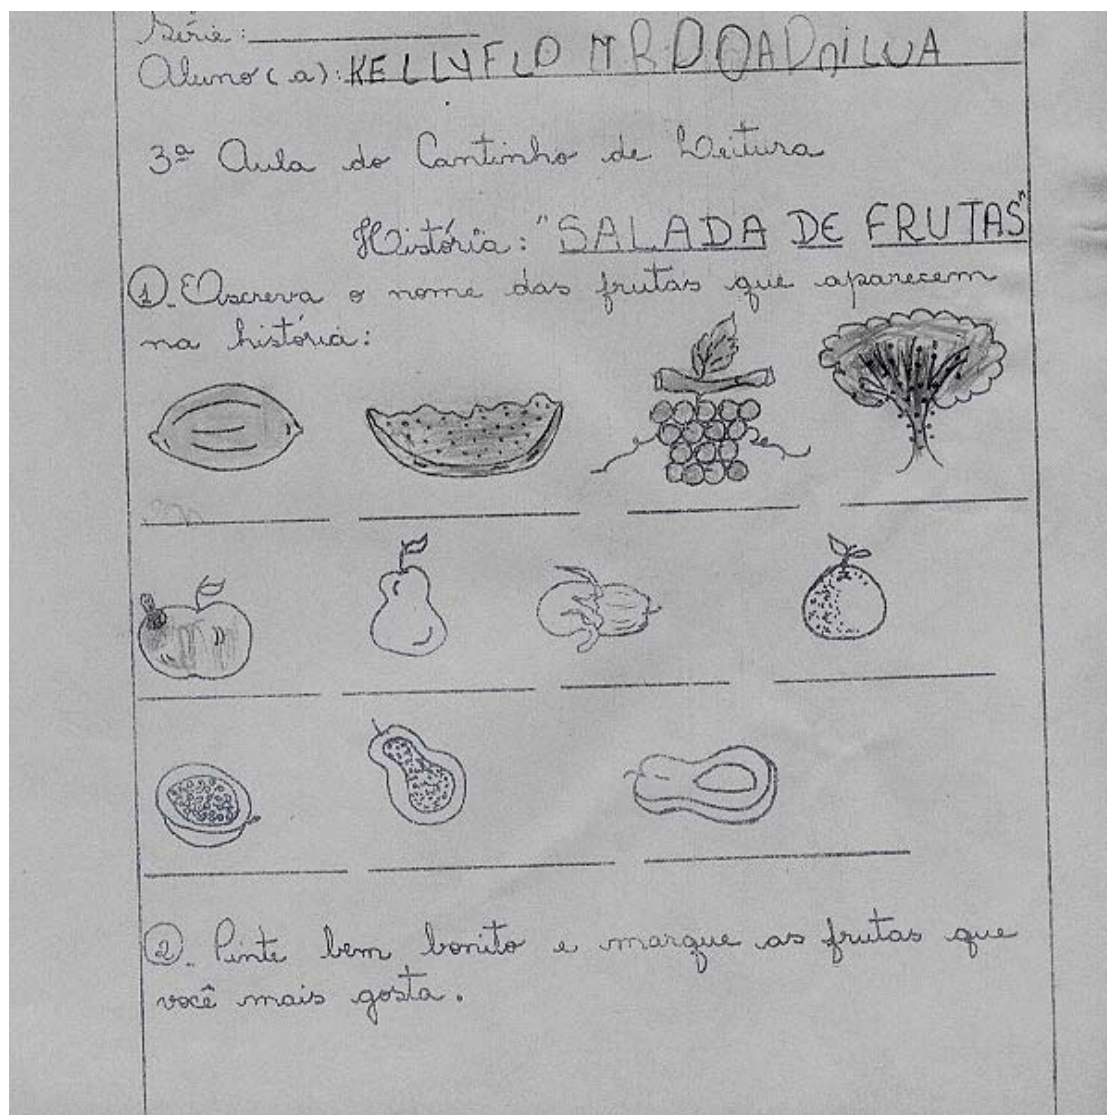 Série:
Aluno(a): KELLYFLO
3ª Aula do Cantinho de Leitura
História: "SALADA DE FRUTAS"
1. Escreva o nome das frutas que aparecem
na história:
2. Pinte bem bonito e marque as frutas que
você mais gosta.